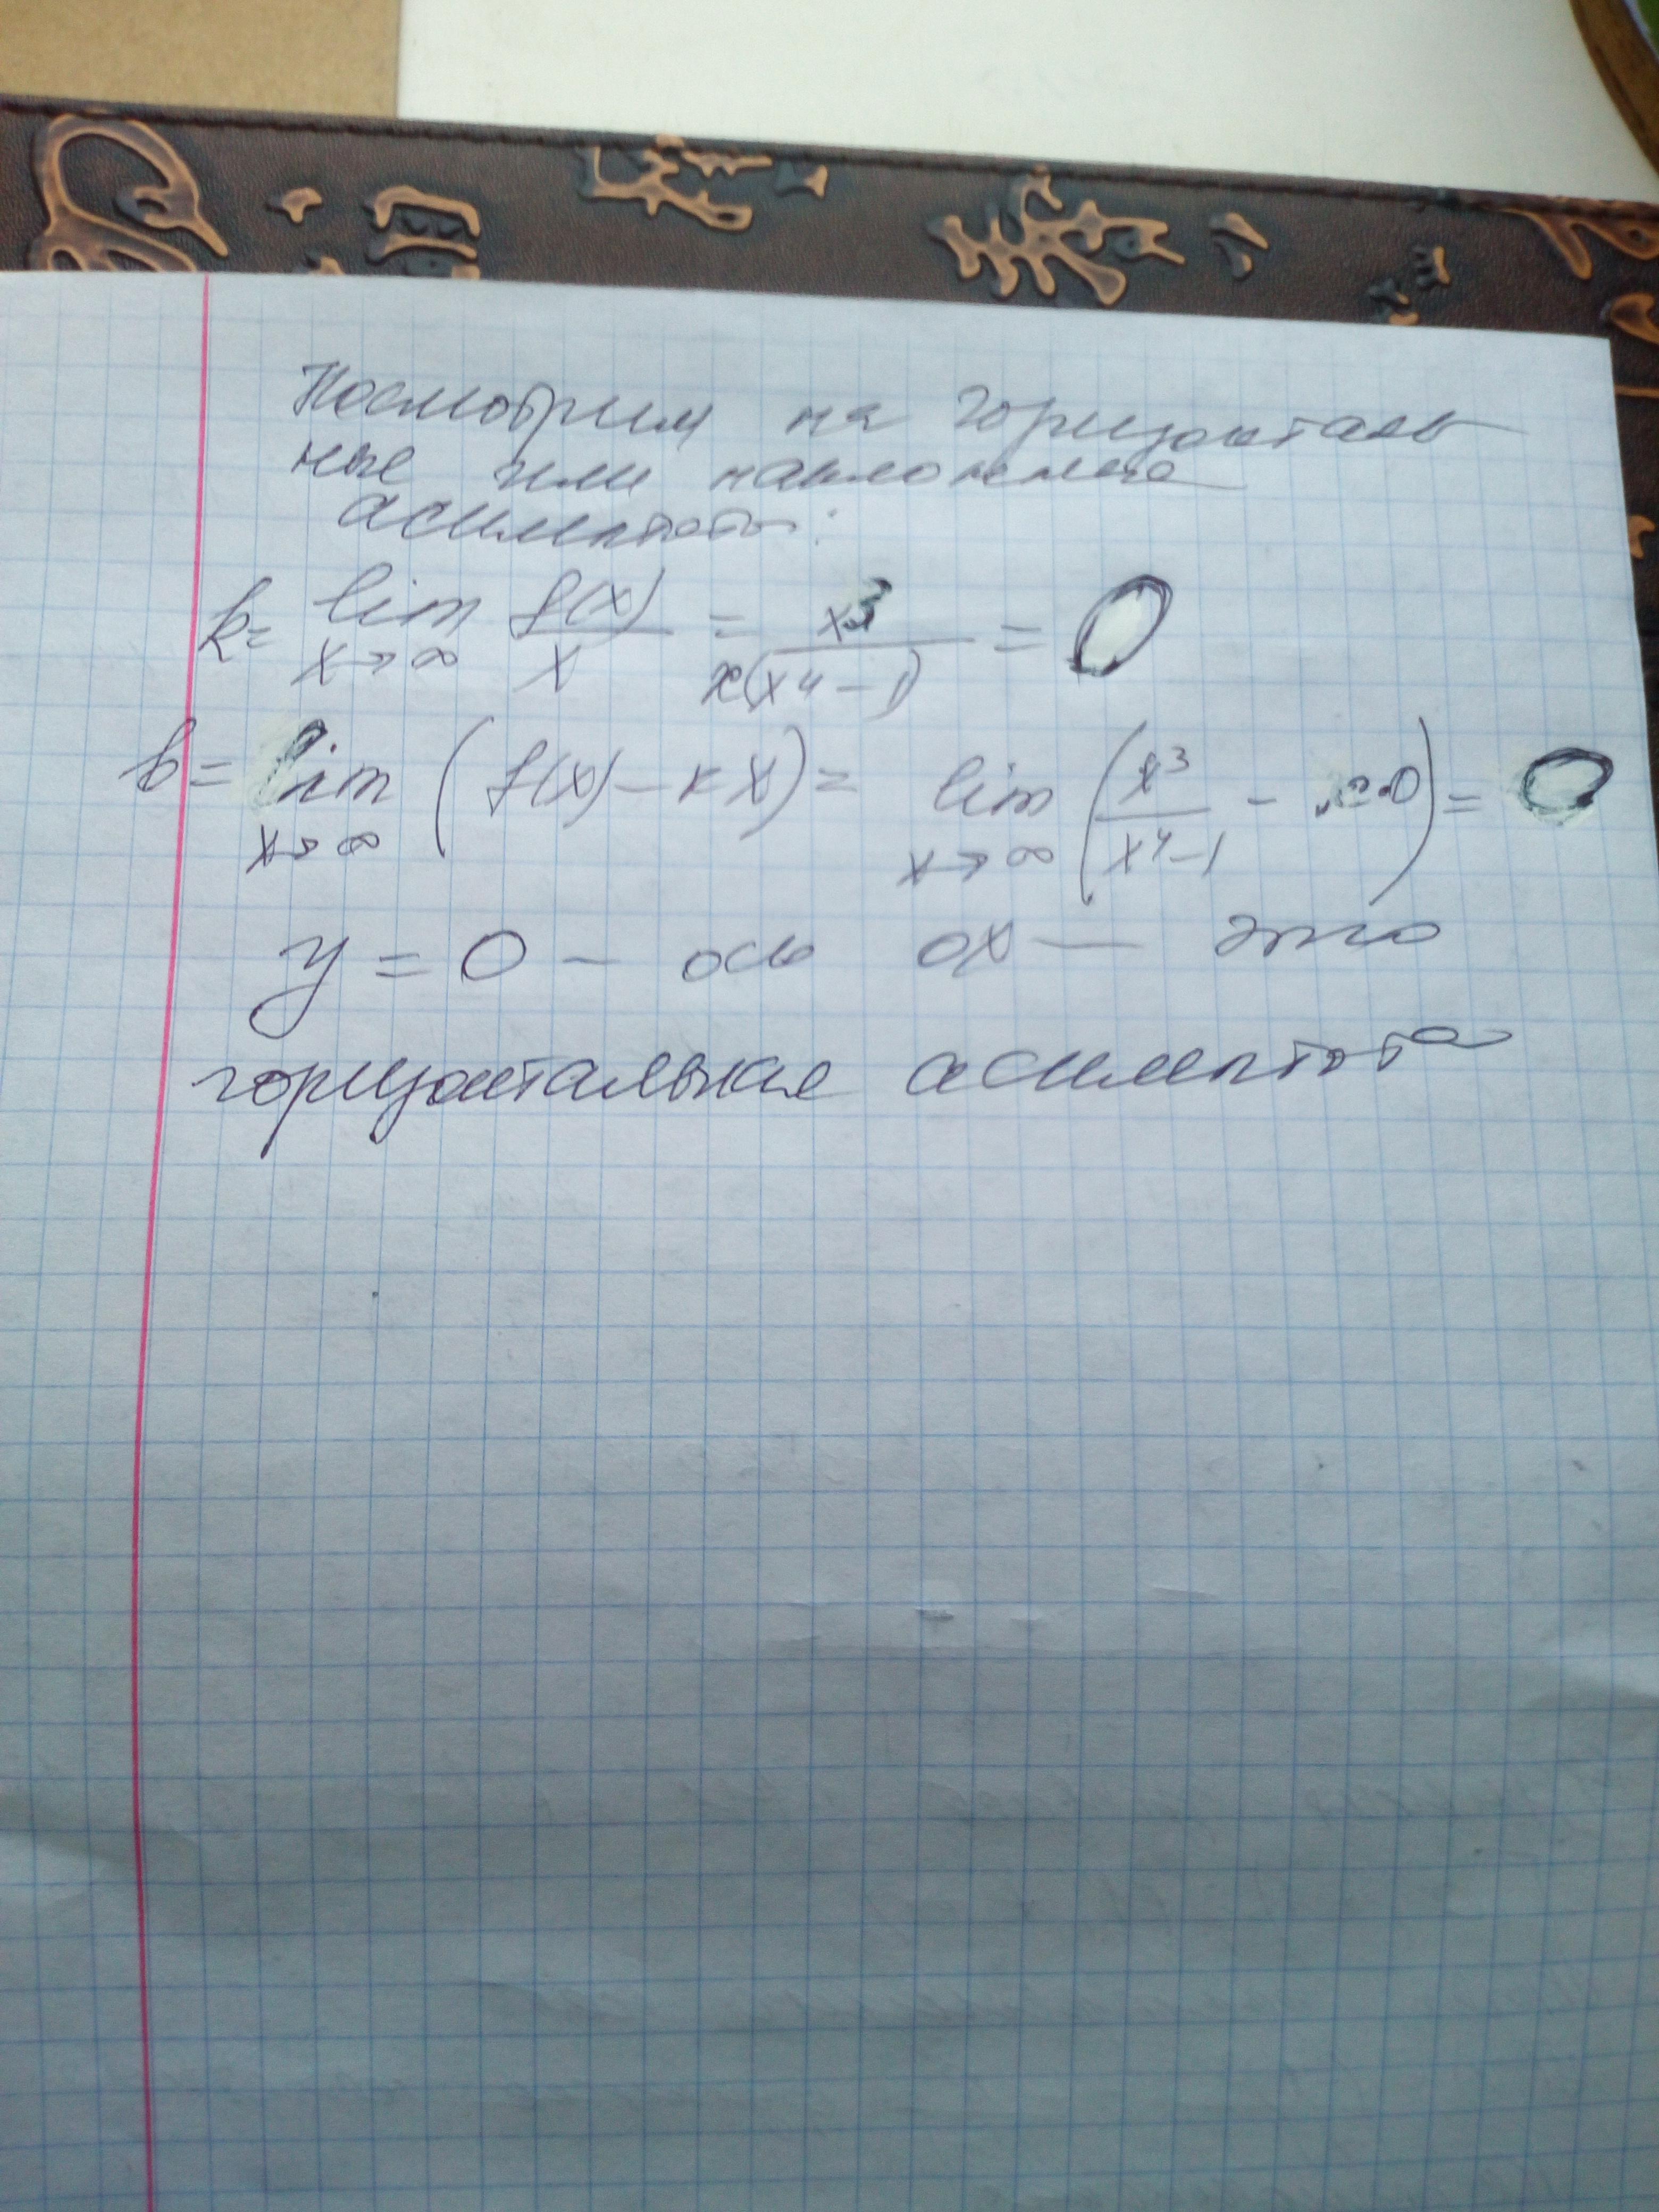 Посмотрим на горизонталь
ные или наклонные
асимптоты:
k = lim x→∞ f(x)/x = x³/(x(x⁴-1)) = 0
b = lim x→∞ (f(x) - kx) = lim x→∞ (x³/(x⁴-1) - x·0) = 0
y = 0 - ось ox — это
горизонтальная асимптота